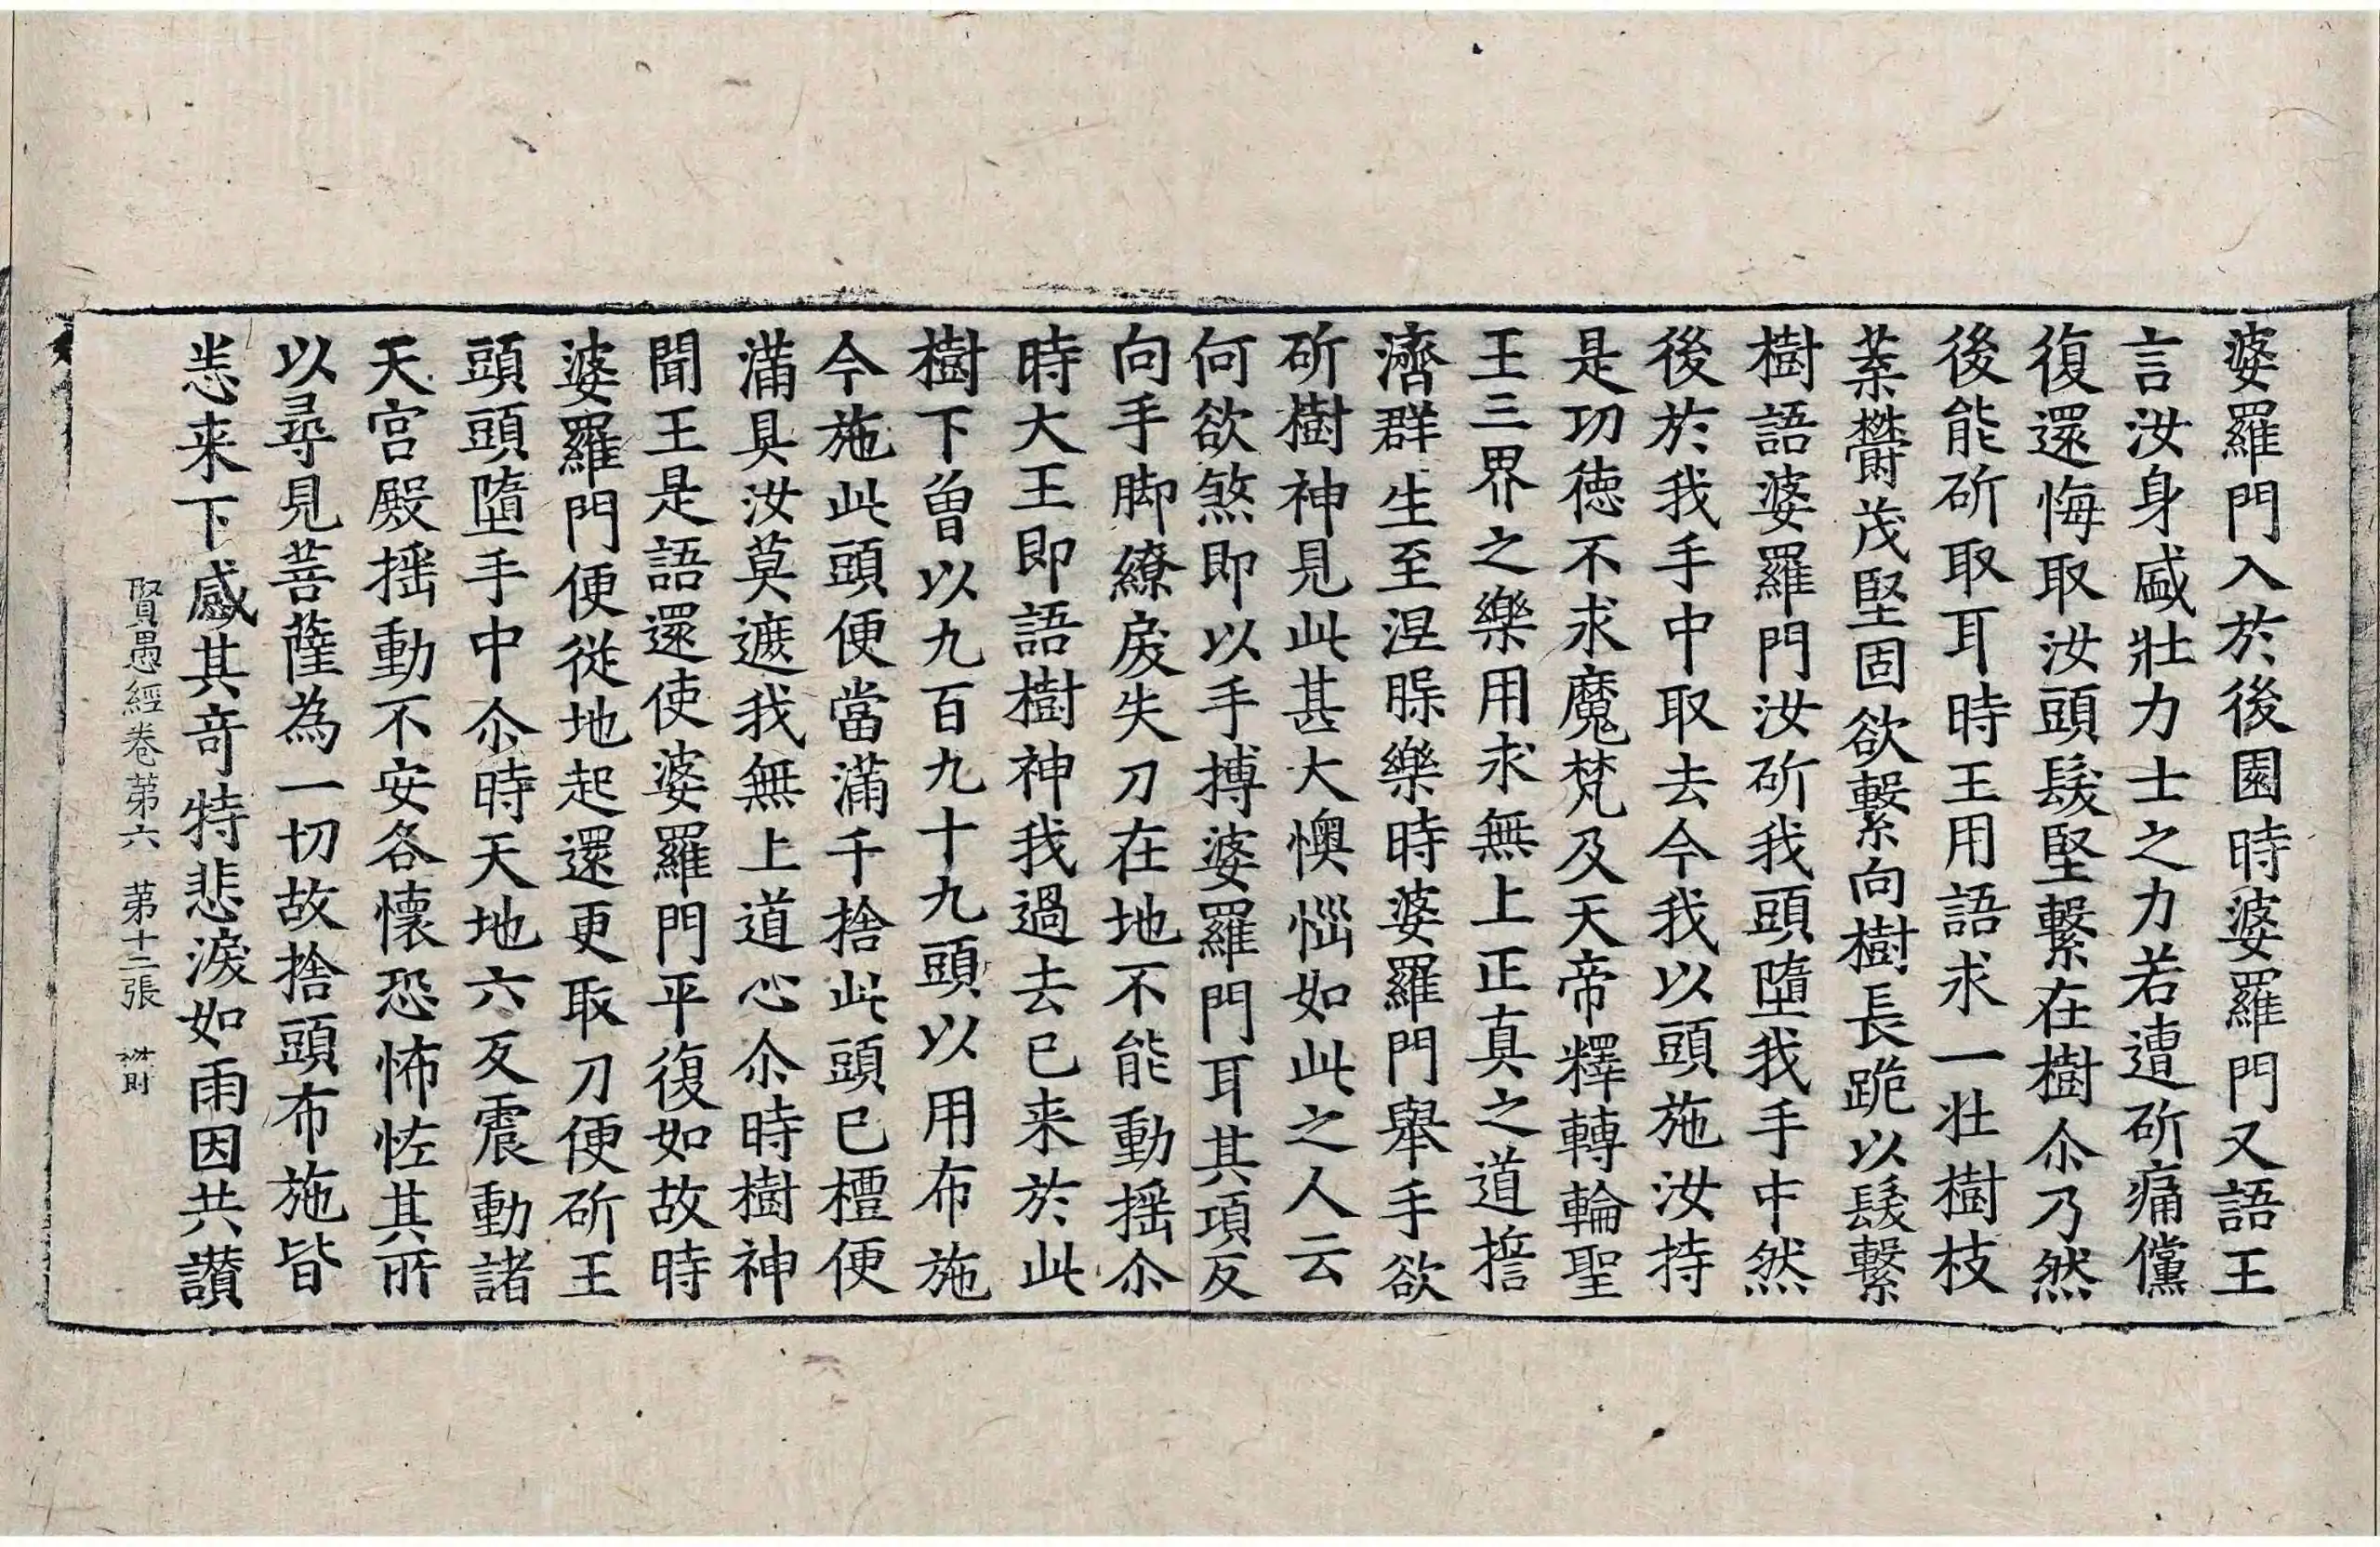 婆羅門入於後園時婆羅門又語王
言汝身盛壯力士之力若遭斫痛儻
復還悔取汝頭髮堅繫在樹尒乃然
後能斫取耳時王用語求一壯樹枝
葉欝茂堅固欲繫向樹長跪以髮繫
樹語婆羅門汝斫我頭墮我手中然
後於我手中取去今我以頭施汝持
是功德不求魔梵及天帝釋轉輪聖
王三界之樂用求無上正真之道誓
濟群生至涅槃樂時婆羅門舉手欲
斫樹神見此甚大懊惱如此之人云
何欲煞即以手搏婆羅門耳其項反
向手脚繚戾失刀在地不能動摇尒
時大王即語樹神我過去已来於此
樹下曾以九百九十九頭以用布施
今施此頭便當滿千捨此頭已檀便
滿具汝莫遮我無上道心尒時樹神
聞王是語還使婆羅門平復如故時
婆羅門便從地起還更取刀便斫王
頭頭墮手中尒時天地六反震動諸
天宮殿摇動不安各懷恐怖恠其所
以尋見菩薩為一切故捨頭布施皆
悉来下感其奇特悲淚如雨因共讃
賢愚經卷第六 第十二張